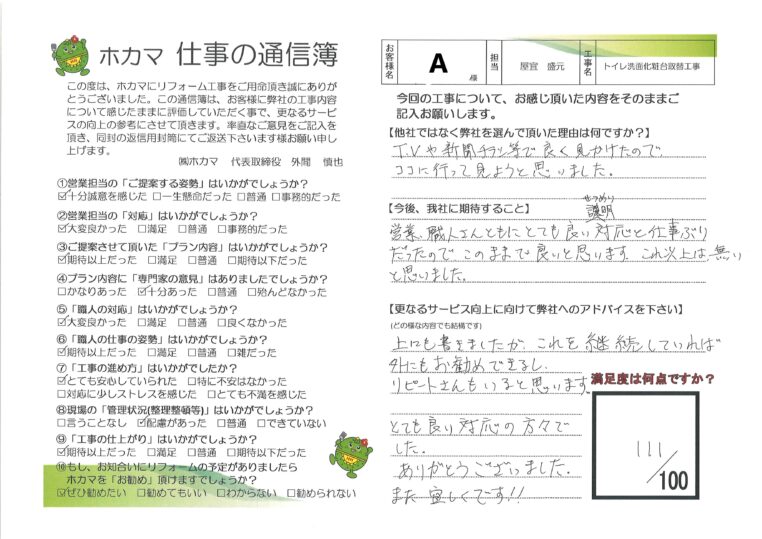 ホカマ 仕事の通信簿
この度は、ホカマにリフォーム工事をご用命頂き誠にありが
とうございました。この通信簿は、お客様に弊社の工事内容
について感じたままに評価していただく事で、更なるサービ
スの向上の参考にさせて頂きます。率直なご意見をご記入を
頂き、同封の返信用封筒にてご返送下さいます様お願い申し
上げます。
㈱ホカマ 代表取締役 外間 慎也
①営業担当の「ご提案する姿勢」はいかがでしょうか？
☑十分誠意を感じた □一生懸命だった □普通 □事務的だった
②営業担当の「対応」はいかがでしょうか？
☑大変良かった □満足 □普通 □事務的だった
③ご提案させて頂いた「プラン内容」はいかがでしょうか？
☑期待以上だった □満足 □普通 □期待以下だった
④プラン内容に「専門家の意見」はありましたでしょうか？
□かなりあった ☑十分あった □普通 □殆んどなかった
⑤「職人の対応」はいかがでしょうか？
☑大変良かった □満足 □普通 □良くなかった
⑥「職人の仕事の姿勢」はいかがでしょうか？
☑期待以上だった □満足 □普通 □雑だった
⑦「工事の進め方」はいかがでしたか？
☑とても安心していられた □特に不安はなかった
□対応に少しストレスを感じた □とても不満を感じた
⑧現場の「管理状況(整理整頓等)」はいかがでしょうか？
□言うことなし ☑配慮があった □普通 □できていない
⑨「工事の仕上がり」はいかがでしょうか？
☑期待以上だった □満足 □普通 □期待以下だった
⑩もし、お知合いにリフォームの予定がありましたら
ホカマを「お勧め」頂けますでしょうか？
☑ぜひ勧めたい □勧めてもいい □わからない □勧められない
お客様名 A 様 担当 屋宜 盛元 工事名 トイレ洗面化粧台取替工事
今回の工事について、お感じ頂いた内容をそのままご
記入お願いします。
【他社ではなく弊社を選んで頂いた理由は何ですか？】
T.Vや新聞チラシ等で良く見かけたので、
ココに行って見ようと思いました。
【今後、我社に期待すること】
せつめい
説明
営業、職人さんともにとても良い対応と仕事ぶり
だったので このままで良いと思います。これ以上は無い
と思いました。
【更なるサービス向上に向けて弊社へのアドバイスを下さい】
(どの様な内容でも結構です)
上にも書きましたが、これを継続していれば
外にもお勧めできるし、
リピートさんもいると思います。
とても良い対応の方々で
した。
ありがとうございました。
また宜しくです!!
満足度は何点ですか？
111/100